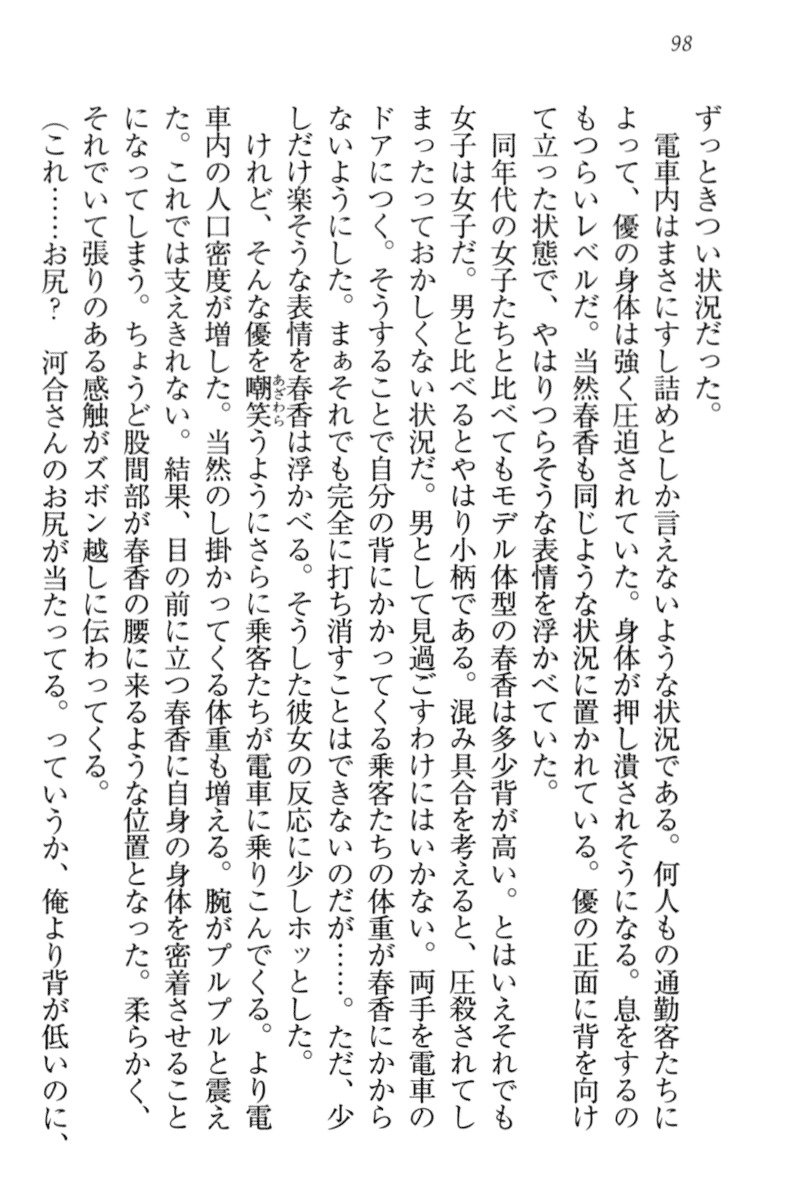 98
ずっときつい状況だった。
　電車内はまさにすし詰めとしか言えないような状況である。何人もの通勤客たちに
よって、優の身体は強く圧迫されていた。身体が押し潰されそうになる。息をするの
もつらいレベルだ。当然春香も同じような状況に置かれている。優の正面に背を向け
て立った状態で、やはりつらそうな表情を浮かべていた。
　同年代の女子たちと比べてもモデル体型の春香は多少背が高い。とはいえそれでも
女子は女子だ。男と比べるとやはり小柄である。混み具合を考えると、圧殺されてし
まったっておかしくない状況だ。男として見過ごすわけにはいかない。両手を電車の
ドアにつく。そうすることで自分の背にかかってくる乗客たちの体重が春香にかから
ないようにした。まぁそれでも完全に打ち消すことはできないのだが……。ただ、少
しだけ楽そうな表情を春香は浮かべる。そうした彼女の反応に少しホッとした。
　けれど、そんな優を嘲笑あざわらうようにさらに乗客たちが電車に乗りこんでくる。より電
車内の人口密度が増した。当然のし掛かってくる体重も増える。腕がプルプルと震え
た。これでは支えきれない。結果、目の前に立つ春香に自身の身体を密着させること
になってしまう。ちょうど股間部が春香の腰に来るような位置となった。柔らかく、
それでいて張りのある感触がズボン越しに伝わってくる。
（これ……お尻？　河合さんのお尻が当たってる。っていうか、俺より背が低いのに、